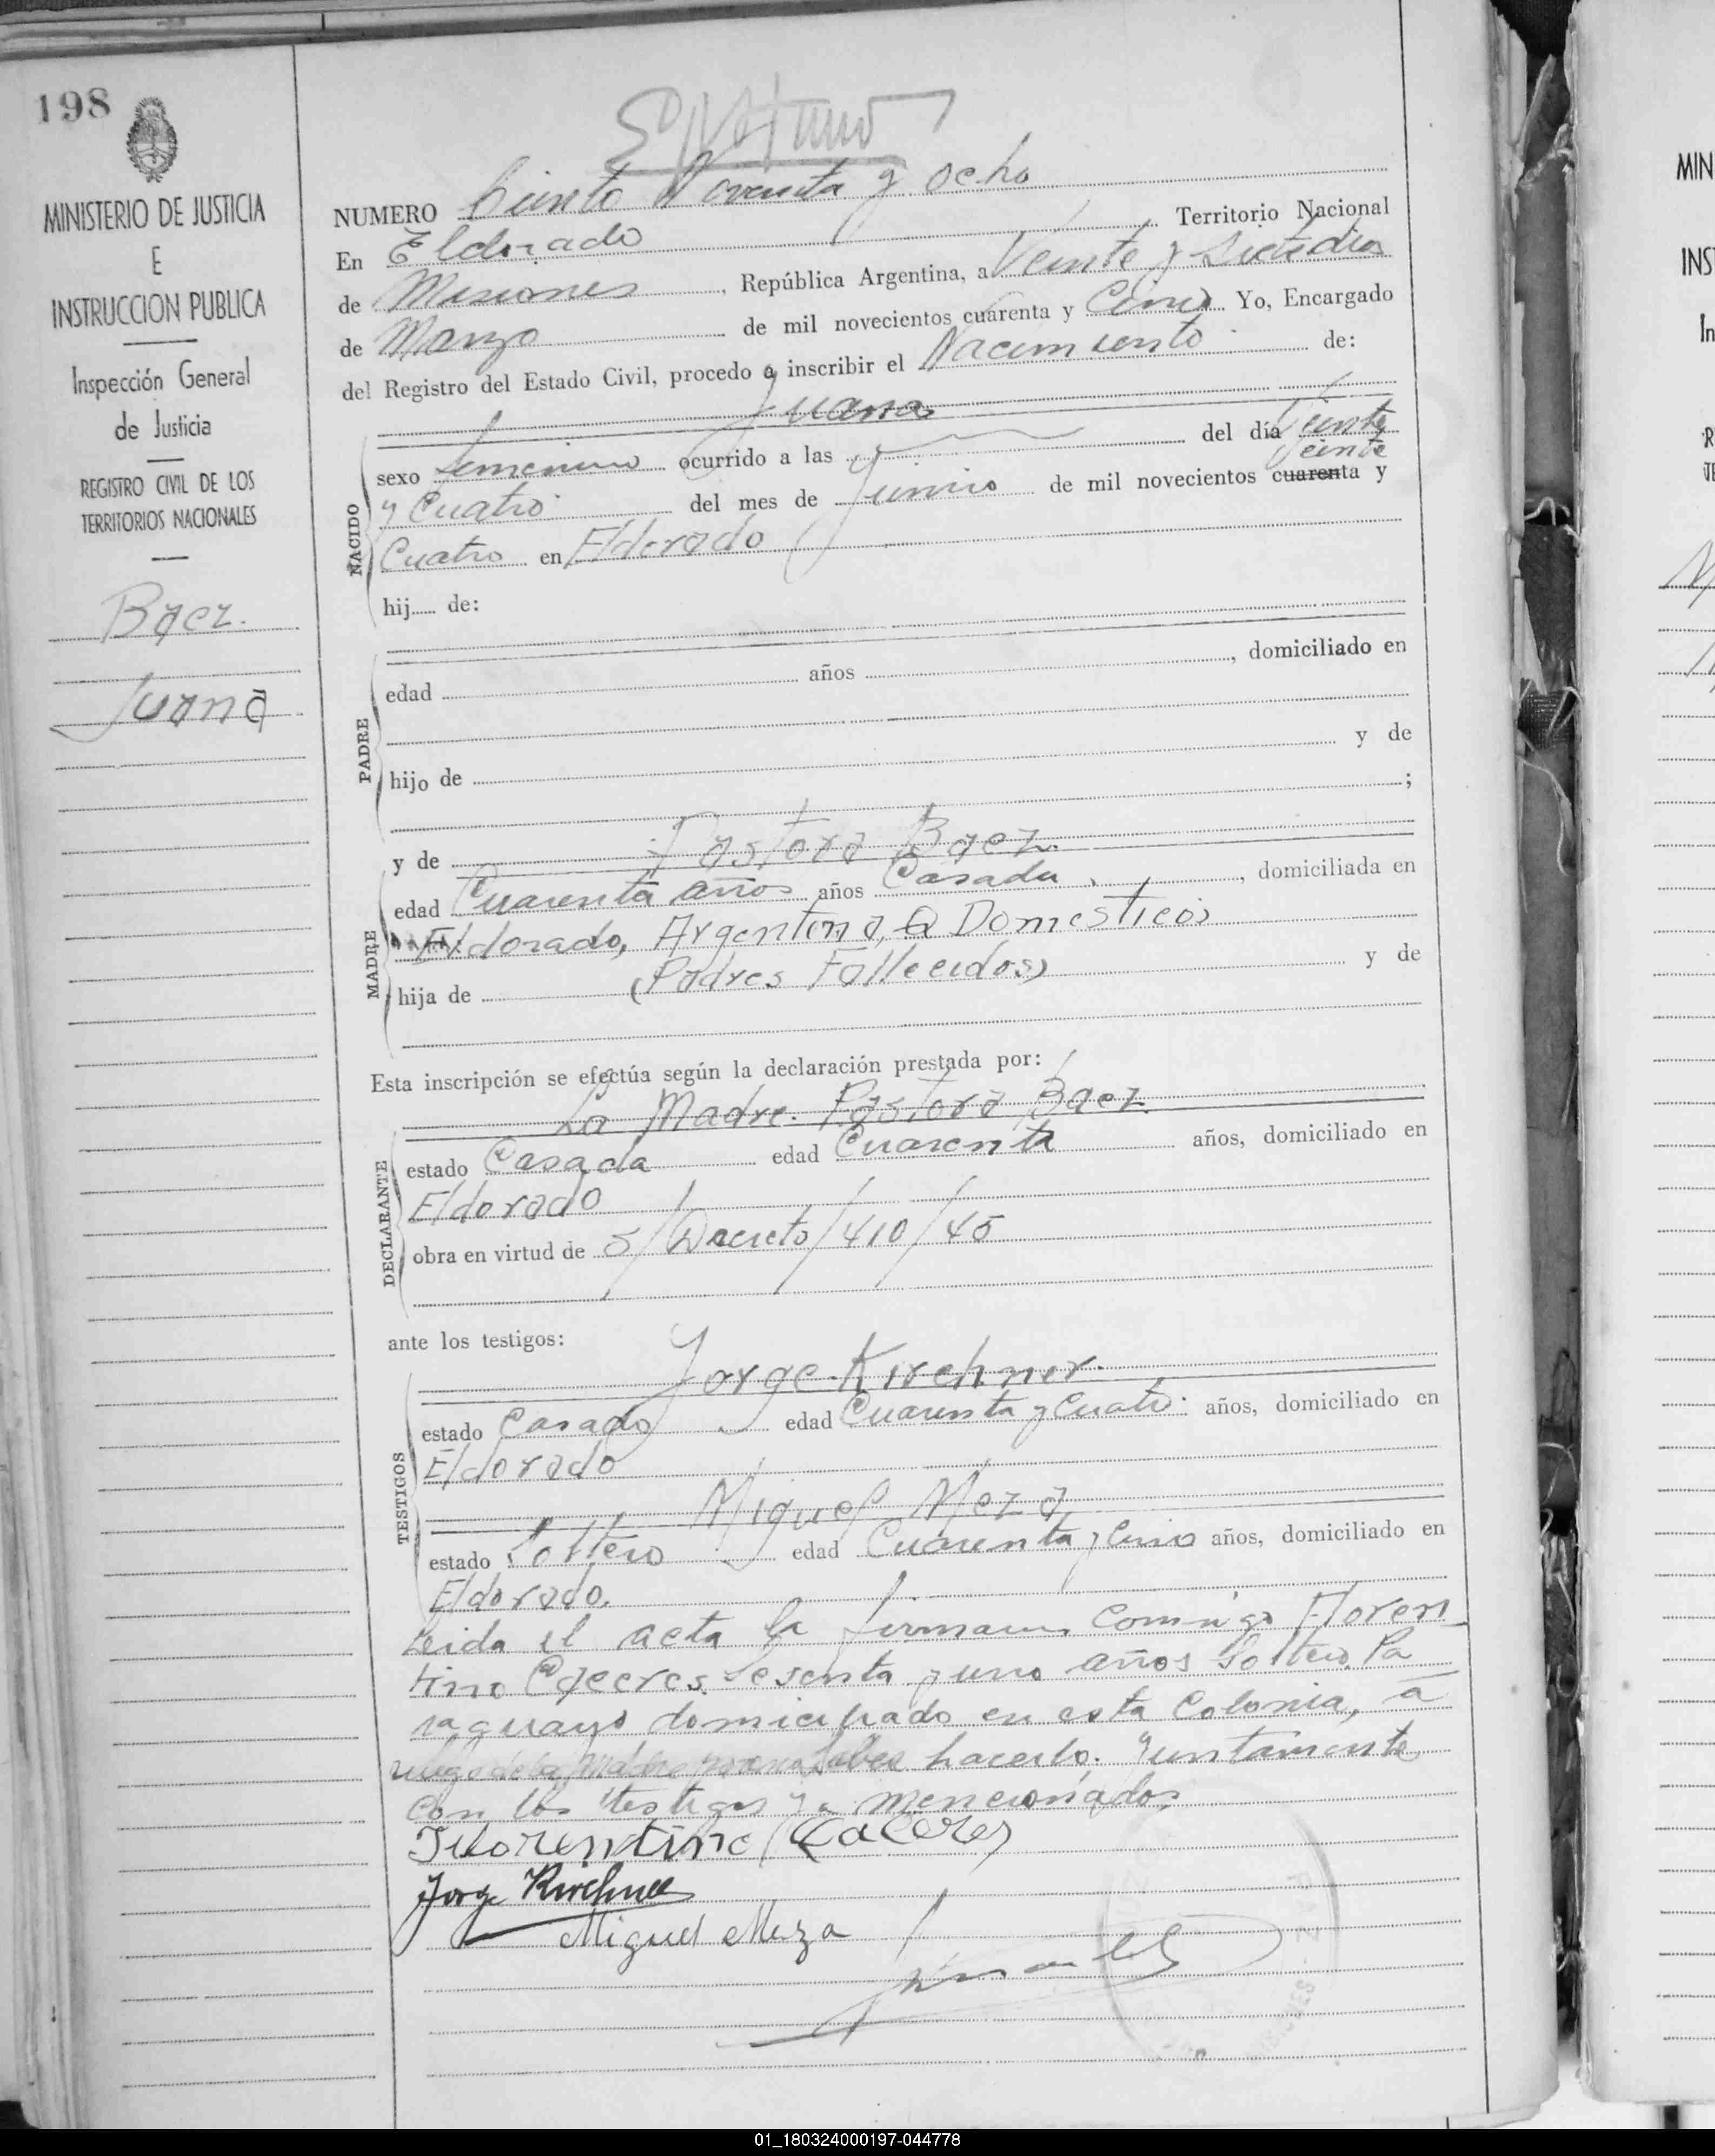 198
MINISTERIO DE JUSTICIA
E
INSTRUCCION PUBLICA
Inspección General
de Justicia
REGISTRO CIVIL DE LOS
TERRITORIOS NACIONALES
Baez.
Juana
NUMERO Ciento Noventa y ocho
En Eldorado Territorio Nacional
de Misiones, República Argentina, a Veinte y Siete dias
de Marzo de mil novecientos cuarenta y Cinco Yo, Encargado
del Registro del Estado Civil, procedo a inscribir el Nacimiento de:
Juana
NACIDO
sexo femenino ocurrido a las del día Veinte
y Cuatro del mes de Junio de mil novecientos cuarenta y
Veinte
Cuatro en Eldorado
hij de:
PADRE
edad años, domiciliado en
hijo de y de
;
MADRE
y de Pastora Baez.
edad Cuarenta años años Casada, domiciliada en
Eldorado, Argentina, Q Domesticos
hija de (Padres Fallecidos) y de
Esta inscripción se efectúa según la declaración prestada por:
La Madre. Pastora Baez.
DECLARANTE
estado Casada edad Cuarenta años, domiciliado en
Eldorado
obra en virtud de S/Decreto/410/45
ante los testigos:
Jorge Kirchner.
TESTIGOS
estado Casado edad Cuarenta y Cuatro años, domiciliado en
Eldorado
Miguel Meza
estado Soltero edad Cuarenta y Cinco años, domiciliado en
Eldorado.
Leida el acta la firman Comigo Floren
tino Caceres. sesenta y uno años Soltero. Pa
raguayo domiciliado en esta Colonia, a
ruego de la Madre por no saber hacerlo. Juntamente
con los testigos ya mencionados
Florentino Caceres
Jorge Kirchner
Miguel Meza
01_180324000197-044778